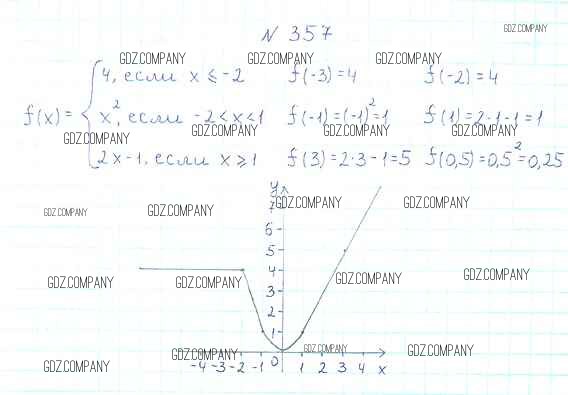 N 357
GDZ.COMPANY
GDZ.COMPANY GDZ.COMPANY GDZ.COMPANY
4, если x ⩽ -2 f(-3) = 4 f(-2) = 4
f(x) = { x², если -2 < x < 1 f(-1) = (-1)² = 1 f(1) = 2·1-1 = 1
GDZ.COMPANY GDZ.COMPANY GDZ.COMPANY
2x-1, если x ⩾ 1 f(3) = 2·3-1 = 5 f(0,5) = 0,5² = 0,25
y
GDZ.COMPANY GDZ.COMPANY GDZ.COMPANY GDZ.COMPANY
7
6
5
4
GDZ.COMPANY GDZ.COMPANY GDZ.COMPANY GDZ.COMPANY
3
2
1
GDZ.COMPANY GDZ.COMPANY GDZ.COMPANY
-4 -3 -2 -1 0 1 2 3 4 x
GDZ.COMPANY